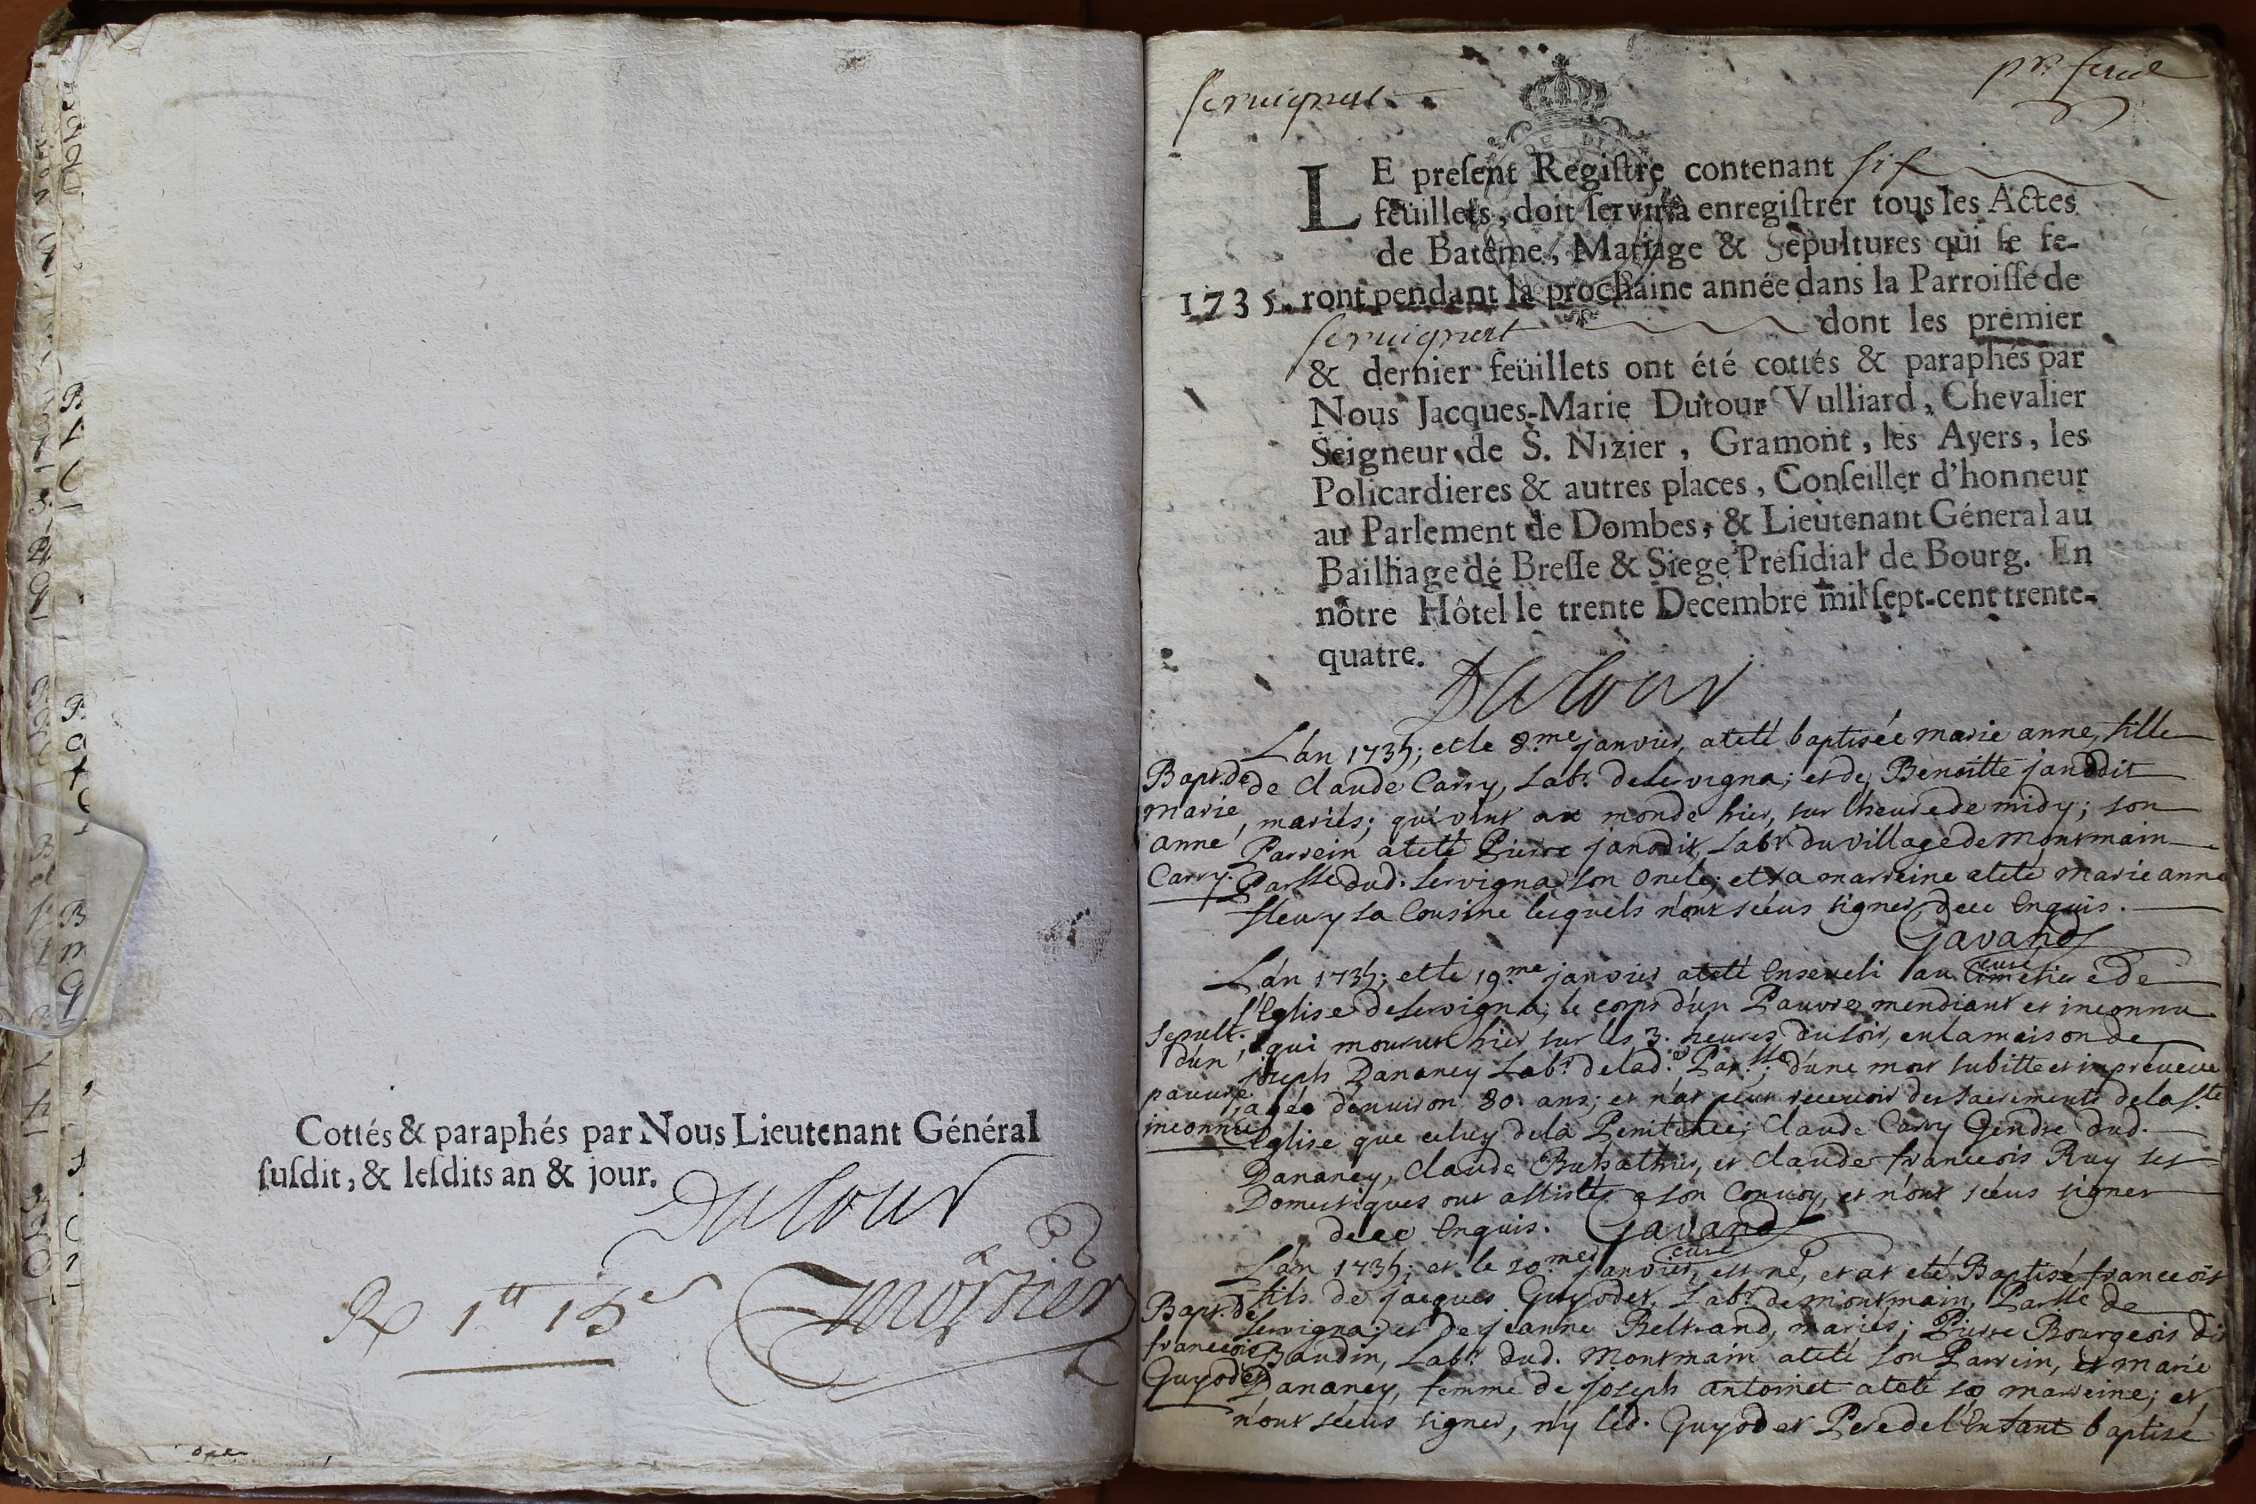 Cottés & paraphés par Nous Lieutenant Général
ſuſdit, & leſdits an & jour.
Dutour
servignat
LE preſent Regiſtre contenant six
feüillets, doit ſervir à enregiſtrer tous les Actes
de Batême, Mariage & Sepultures qui ſe fe-
1735. ront pendant la prochaine année dans la Parroiſſe de
servignat dont les premier
& dernier feüillets ont été cottés & paraphés par
Nous Jacques-Marie Dutour Vulliard, Chevalier
Seigneur de S. Nizier, Gramont, les Ayers, les
Policardieres & autres places, Conſeiller d'honneur
au Parlement de Dombes, & Lieutenant Géneral au
Bailliage de Breſſe & Siege Preſidial de Bourg. En
nôtre Hôtel le trente Decembre mil ſept-cent trente-
quatre.
Dutour
L'an 1735; et le 8.me janvier, a eté baptisée marie anne, fille
Bapt. de de Claude Carry, Labr. de servigna; et de Benoitte janodit
marie mariés; qui vint au monde hier, sur l'heure de midy; son
anne Parrein a eté Pierre janodit, Labr du village de Montmain
Carry. Parsse dud. servigna son oncle; et sa marreine a eté marie anne
fleury sa Cousine lesquels n'ont scéus signer, de ce Enquis.
Gavand
curé
L'an 1735; et le 19.me janvier a eté Enseveli au Cimetiere de
l'Eglise de servigna; le corps d'un Pauvre mendiant et inconnu
sepult. qui mourut hier sur les 3. heures du soir, en la maison de
d'un joseph Dananey Labr. de lad. Par.sse; d'une mort subitte et impreveue
pauvre agée d'environ 80. ans; et n'at peut recevoir des sacrements de la s.te
inconnu Eglise que celuy de la Penitence; Claude Carry Gendre dud.
Dananey, Claude et Claude francois Ruy ses
Domestiques ont assistés a son Convoy, et n'ont scéus signer
de ce Enquis. Gavand
curé
L'an 1735; et le 20.me janvier, est né, et at eté Baptisé francois
fils de jacques Guyodet, Labr. de montmain, Parsse de
Bapt. de servigna; et de jeanne Beltrand, mariés; Pierre Bourgeois dit
francois Baudin, Labr. dud. Montmain a eté son Parrein, et marie
Guyodet Dananey, femme de joseph antoinet a eté sa marreine; et
n'ont scéus signer, n'y led. Guyodet Pere de l'Enfant baptisé